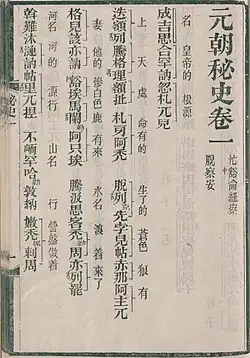 元朝秘史卷一
忙豁侖紐察
脫察安
成吉思合罕訥忽札兀兒
名 皇帝的 根源
迭額列騰格理額扯 札牙阿禿 脫列先孛兒帖赤那阿主兀
上天處 命有的 生了的 蒼色狼有
格兒該亦訥 豁埃馬闌勒阿只埃 騰汲思客禿勒周亦列罷
妻 他的 慘白色鹿有來 水名 渡着來了
斡難沐漣訥帖里兀捏 不峏罕哈勒敦納 嫩禿剌周
河名 河的 源行 山名 行 營盤做着
秘史一